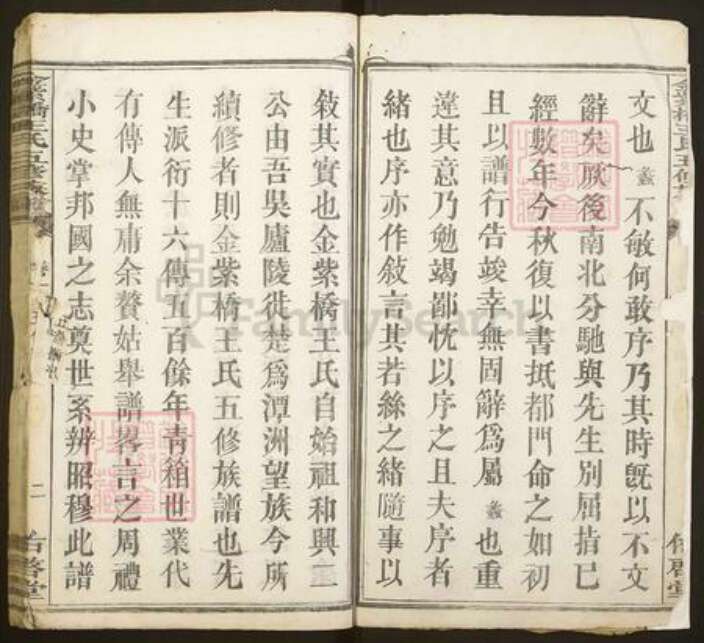 文也 蓋不敏何敢序乃其時旣以不文
辭矣厥後南北分馳與先生別屈指已
經數年今秋復以書抵都門命之如初
且以譜行告竣幸無固辭爲屬 蓋也重
違其意乃勉竭鄙忱以序之且夫序者
緒也序亦作敘言其若絲之緒隨事以
敘其實也金紫橋王氏自始祖和興
公由吾吳廬陵徙楚爲潭洲望族今所
續修者則金紫橋王氏五修族譜也先
生派衍十六傳五百餘年靑箱世業代
有傳人無庸余贅姑舉譜畧言之周禮
小史掌邦國之志奠世系辨昭穆此譜
金紫橋王氏五修族譜
卷一
二
啓堂
FamilySearch